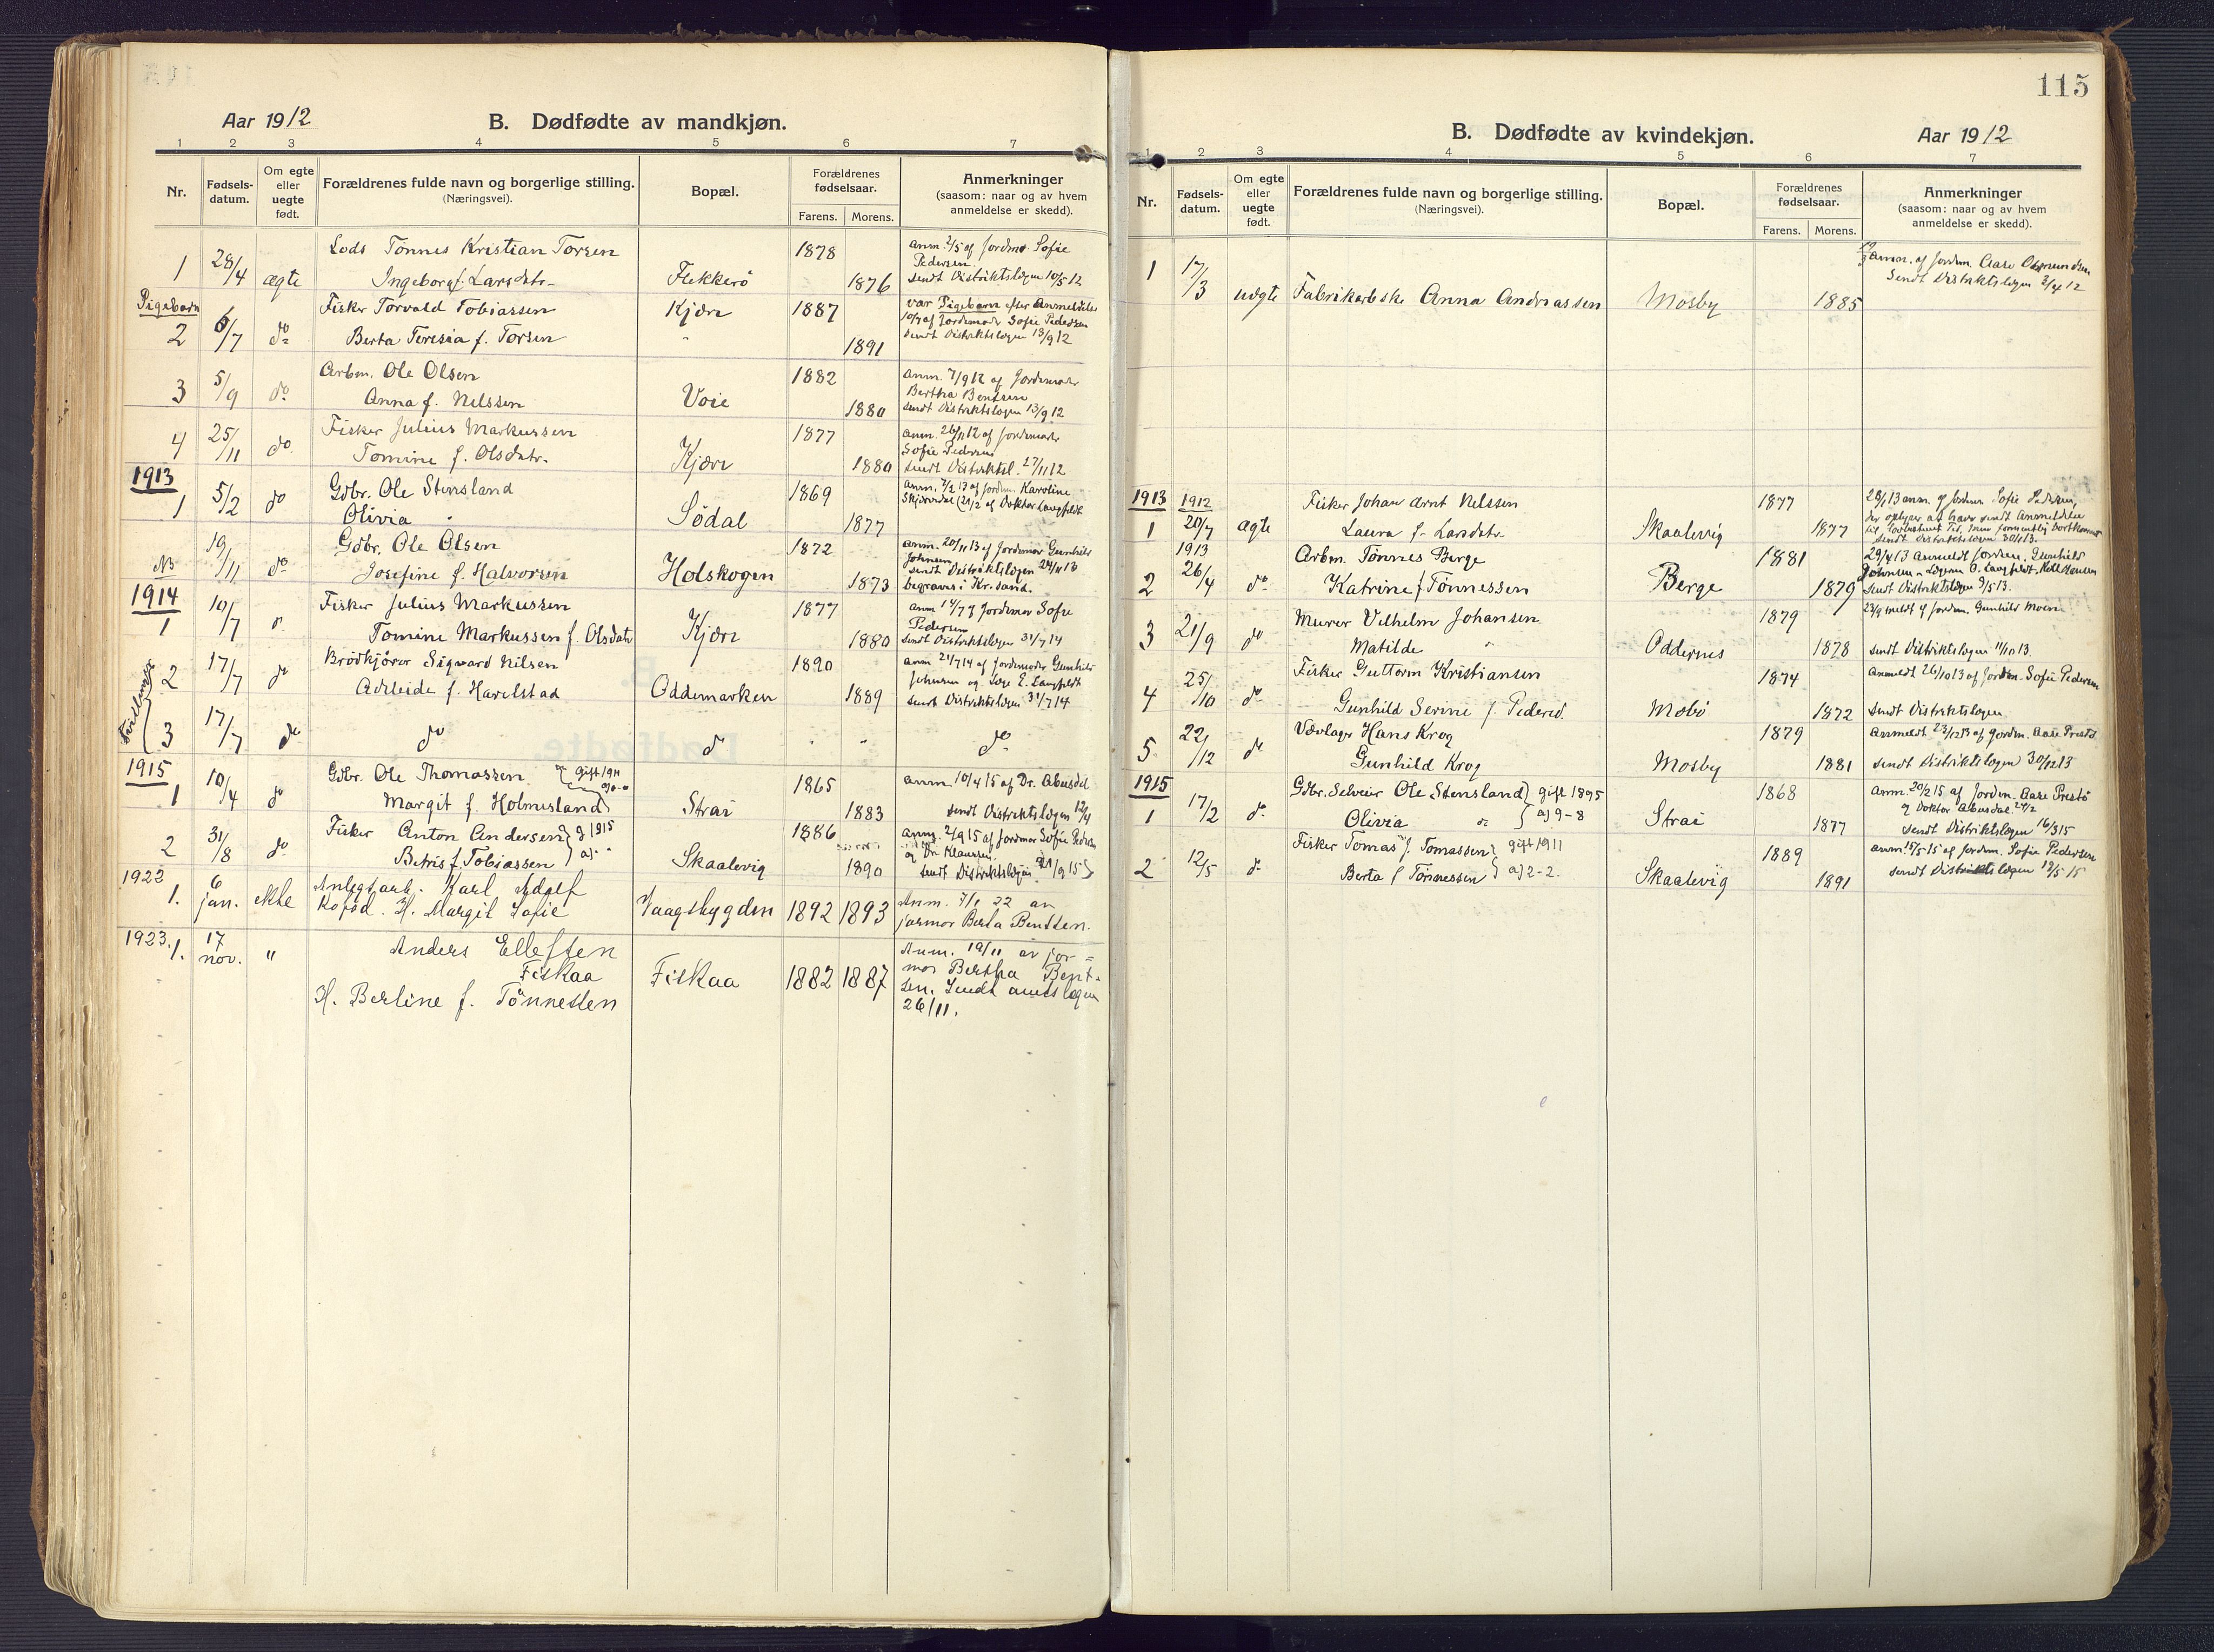 Aar 1912
B. Dødfødte av mandkjøn.
1 2 3 4 5 6 7
Nr.
Fødsels-
datum.
Om egte
eller
uegte
født.
Forældrenes fulde navn og borgerlige stilling.
(Næringsvei).
Bopæl.
Forældrenes
fødselsaar.
Farens. Morens.
Anmerkninger
(saasom: naar og av hvem
anmeldelse er skedd).
Lods Tönnes Kristian Torsen 1878 anm. 2/5 af Jordmo. Sofie
Pedersen
1 28/4 ægte Ingeborg f. Larsdatr. Flekkerö 1876 sendt Distriktslægen 10/5 12
Pigebarn Fisker Torvald Tobiassen Kjær 1887 var Pigebarn efter Anmeldelse
10/7 af Jordemoder Sofie Pedersen
2 6/7 do Berta Teresia f. Torsen " 1891 sendt Distriktslægen 13/9 12
Arbm. Ole Olsen 1882 anm. 7/9 12 af Jordemoder
Bertha Bentsen
3 5/9 do Anna f. Nilssen Voie 1880 sendt Distriktslægen 13/9 12
Fisker Julius Markussen 1877 anm. 26/11 12 af Jordemoder
Sofie Pedersen
4 25/11 do Tomine f. Olsdatr. Kjær 1880 sendt Distriktsl. 27/11 12
1913
Gdbr. Ole Stensland 1869 anm. 7/2 13 af Jordm. Karoline
1 5/2 do Olivia " Södal 1877 af Doktor Langfeldt
Gdbr. Ole Olsen 1872 anm. 20/11 13 af Jordmor Gunhild
Johnsen
sendt Distriktslægen 24/11 13
19/11 do Josefine f. Halvorsen Holskogen 1873 begraves i Kr.sand.
1914
Fisker Julius Markussen 1877 Jordmor Sofie
Pedersen
1 10/7 do Tomine Markussen f. Olsdatr Kjær 1880 sendt Distriktslægen 31/7 14
Brödkjörer Sigvard Nilsen 1890 anm 21/7 14 af Jordemoder Gunhild
Johnsen og Læge E. Langfeldt
2 17/7 do Adeleide f. Harelstad Oddemarken 1889 sendt Distriktslægen 31/7 14
Tvillinger
3 17/7 do do do " " do
1915
Gdbr. Ole Thomassen gift 1911 1865 anm. 10/4 15 af Dr. Abusdal
1 10/4 do Margit f. Holmesland Strai 1883 sendt Distriktslægen 12/4
Fisker Anton Andersen g 1915 1886 anm. 2/9 15 af Jordmor Sofie Pedersen
og Dr. Klaussen.
2 31/8 do Betris f. Tobiassen Skaalevig 1890 sendt Distriktslægen 21/9 15
1922
1. 6 jan. ekte Anlegsarb. Karl Adolf
Kofod. H. Margit Sofie Vaagsbygden 1892 1893 Anm. 7/1 22 av
jormor Berta Bentsen.
1923.
1. 17 nov. " Anders Ellefsen
Fiskaa
H. Berline f. Tönnesen Fiskaa 1882 1887 Anm. 19/11 av jor=
mor Bertha Bent-
sen. Sendt amtslægen
26/11.
115
B. Dødfødte av kvindekjøn.
Aar 1912
1 2 3 4 5 6 7
Nr.
Fødsels-
datum.
Om egte
eller
uegte
født.
Forældrenes fulde navn og borgerlige stilling.
(Næringsvei).
Bopæl.
Forældrenes
fødselsaar.
Farens. Morens.
Anmerkninger
(saasom: naar og av hvem
anmeldelse er skedd).
anm. af Jordm. Aase Osmundsen
Sendt Distriktslægen 2/4 12
1 17/3 uægte Fabrikarbske Anna Andreassen Mosby 1885
1913 1912 Fisker Johan Arnt Nilssen 1877 28/1 13 anm. af Jordm. Sofie Pedersen,
der oplyser at have sendt Anmeldelse
1 20/7 ægte Laura f. Larsdatr. Skaalevig 1877
sendt Distriktslægen 30/1 13.
1913 Arbm. Tönnes Berge 1881 29/4 13 Anmeldt Jordm. Gunhild
Johnsen
2 26/4 do Katrine f. Tönnessen Berge 1879 sendt Distriktslægen 9/5 13.
Murer Vilhelm Johansen 1879 23/9 meldt af Jordm. Gunhild Moen
3 21/9 do Matilde " Oddernes 1878 sendt Distriktslægen 11/10 13.
Fisker Guttorm Kristiansen 1874 Anmeldt 26/10 13 af Jordm. Sofie Pedersen
4 25/10 do Gunhild Serine f. Pedersd. Mebö 1872 sendt Distriktslægen
Hans Krog 1879 Anmeldt 23/12 13 af Jordm. Aase Prestö
5 22/12 do Gunhild Krog Mosby 1881 sendt Distriktslægen 30/12 13
1915
Gdbr. Selveier Ole Stensland gift 1895 1868 anm. 20/2 15 af Jordm. Aase Prestö
og Doktor Abusdal
1 17/2 do Olivia do a) 9-8 Strai 1877 sendt Distriktslægen 16/3 15
Fisker Tomas f. Tomassen gift 1911 1889 anm. 15/5 15 af Jordm. Sofie Pedersen
2 12/5 do Berta f Tönnessen a) 2-2. Skaalevig 1891 sendt Distriktslægen 19/5 15